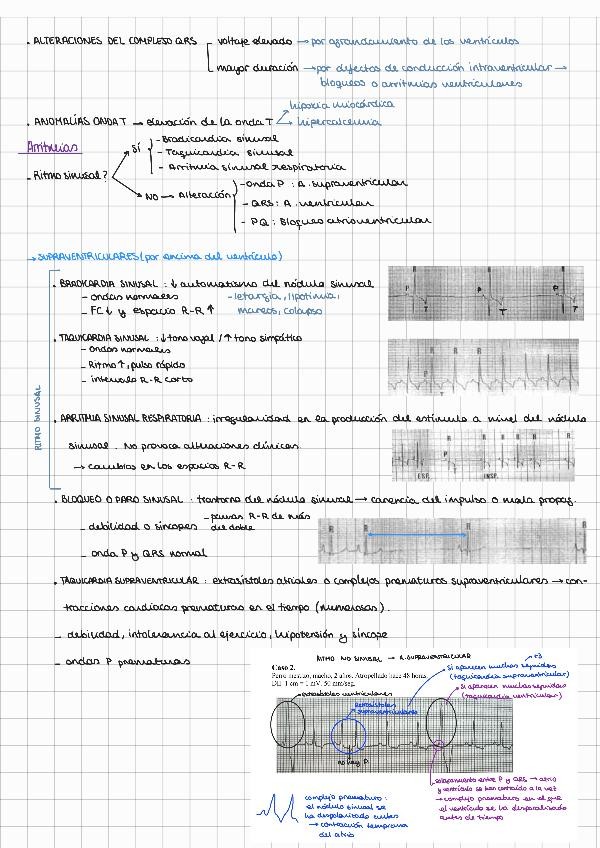 . ALTERACIONES DEL COMPLEJO QRS voltaje elevado → por agrandamiento de los ventrículos
mayor duración → por defectos de conducción intraventricular →
bloqueos o arritmias ventriculares
hipoxia miocárdica
. ANOMALÍAS ONDA T → elevación de la onda T
hipercalcemia
Arritmias
- Ritmo sinusal?
SÍ
- Bradicardia sinusal
- Taquicardia sinusal
- Arritmia sinusal respiratoria
NO → Alteración
- onda P : A. supraventricular
- QRS : A. ventricular
- PQ : Bloqueo atrioventricular
→ SUPRAVENTRICULARES (por encima del ventrículo)
RITMO SINUSAL
. BRADICARDIA SINUSAL : ↓ automatismo del nódulo sinusal
- ondas normales
- letargia, lipotimia,
- FC ↓ y espacio R-R ↑
mareos, colapso
R P T P T P T
. TAQUICARDIA SINUSAL : ↓ tono vagal / ↑ tono simpático
- Ondas normales
- Ritmo ↑, pulso rápido
- intervalo R-R corto
R R P T
. ARRITMIA SINUSAL RESPIRATORIA : irregularidad en la producción del estímulo a nivel del nódulo
sinusal. No provoca alteraciones clínicas.
→ cambios en los espacios R-R
R R R R R R P
ESP. INSP.
. BLOQUEO O PARO SINUSAL : trastorno del nódulo sinusal → carencia del impulso o mala propag.
- pausas R-R de más
- debilidad o síncopes del doble
- onda P y QRS normal
R R R R
. TAQUICARDIA SUPRAVENTRICULAR : extrasístoles atriales o complejos prematuros supraventriculares → con-
tracciones cardíacas prematuras en el tiempo (numerosas).
- debilidad, intolerancia al ejercicio, hipotensión y síncope
- ondas P prematuras
RITMO NO SINUSAL → A. SUPRAVENTRICULAR
+3
Caso 2.
si aparecen muchas seguidas
(taquicardia supraventricular)
Perro mestizo, macho, 2 años. Atropellado hace 48 horas.
DII. 1 cm = 1 mV. 50 mm/seg.
si aparecen muchas seguidas
(taquicardia ventricular)
extrasístoles ventriculares
extrasístoles
supraventriculares
no hay P
solapamiento entre P y QRS → atrio
y ventrículo se han contraído a la vez
→ complejo prematuro en el que
el ventrículo se ha despolarizado
antes de tiempo
complejo prematuro :
el nódulo sinusal se
ha despolarizado antes
→ contracción temprana
del atrio